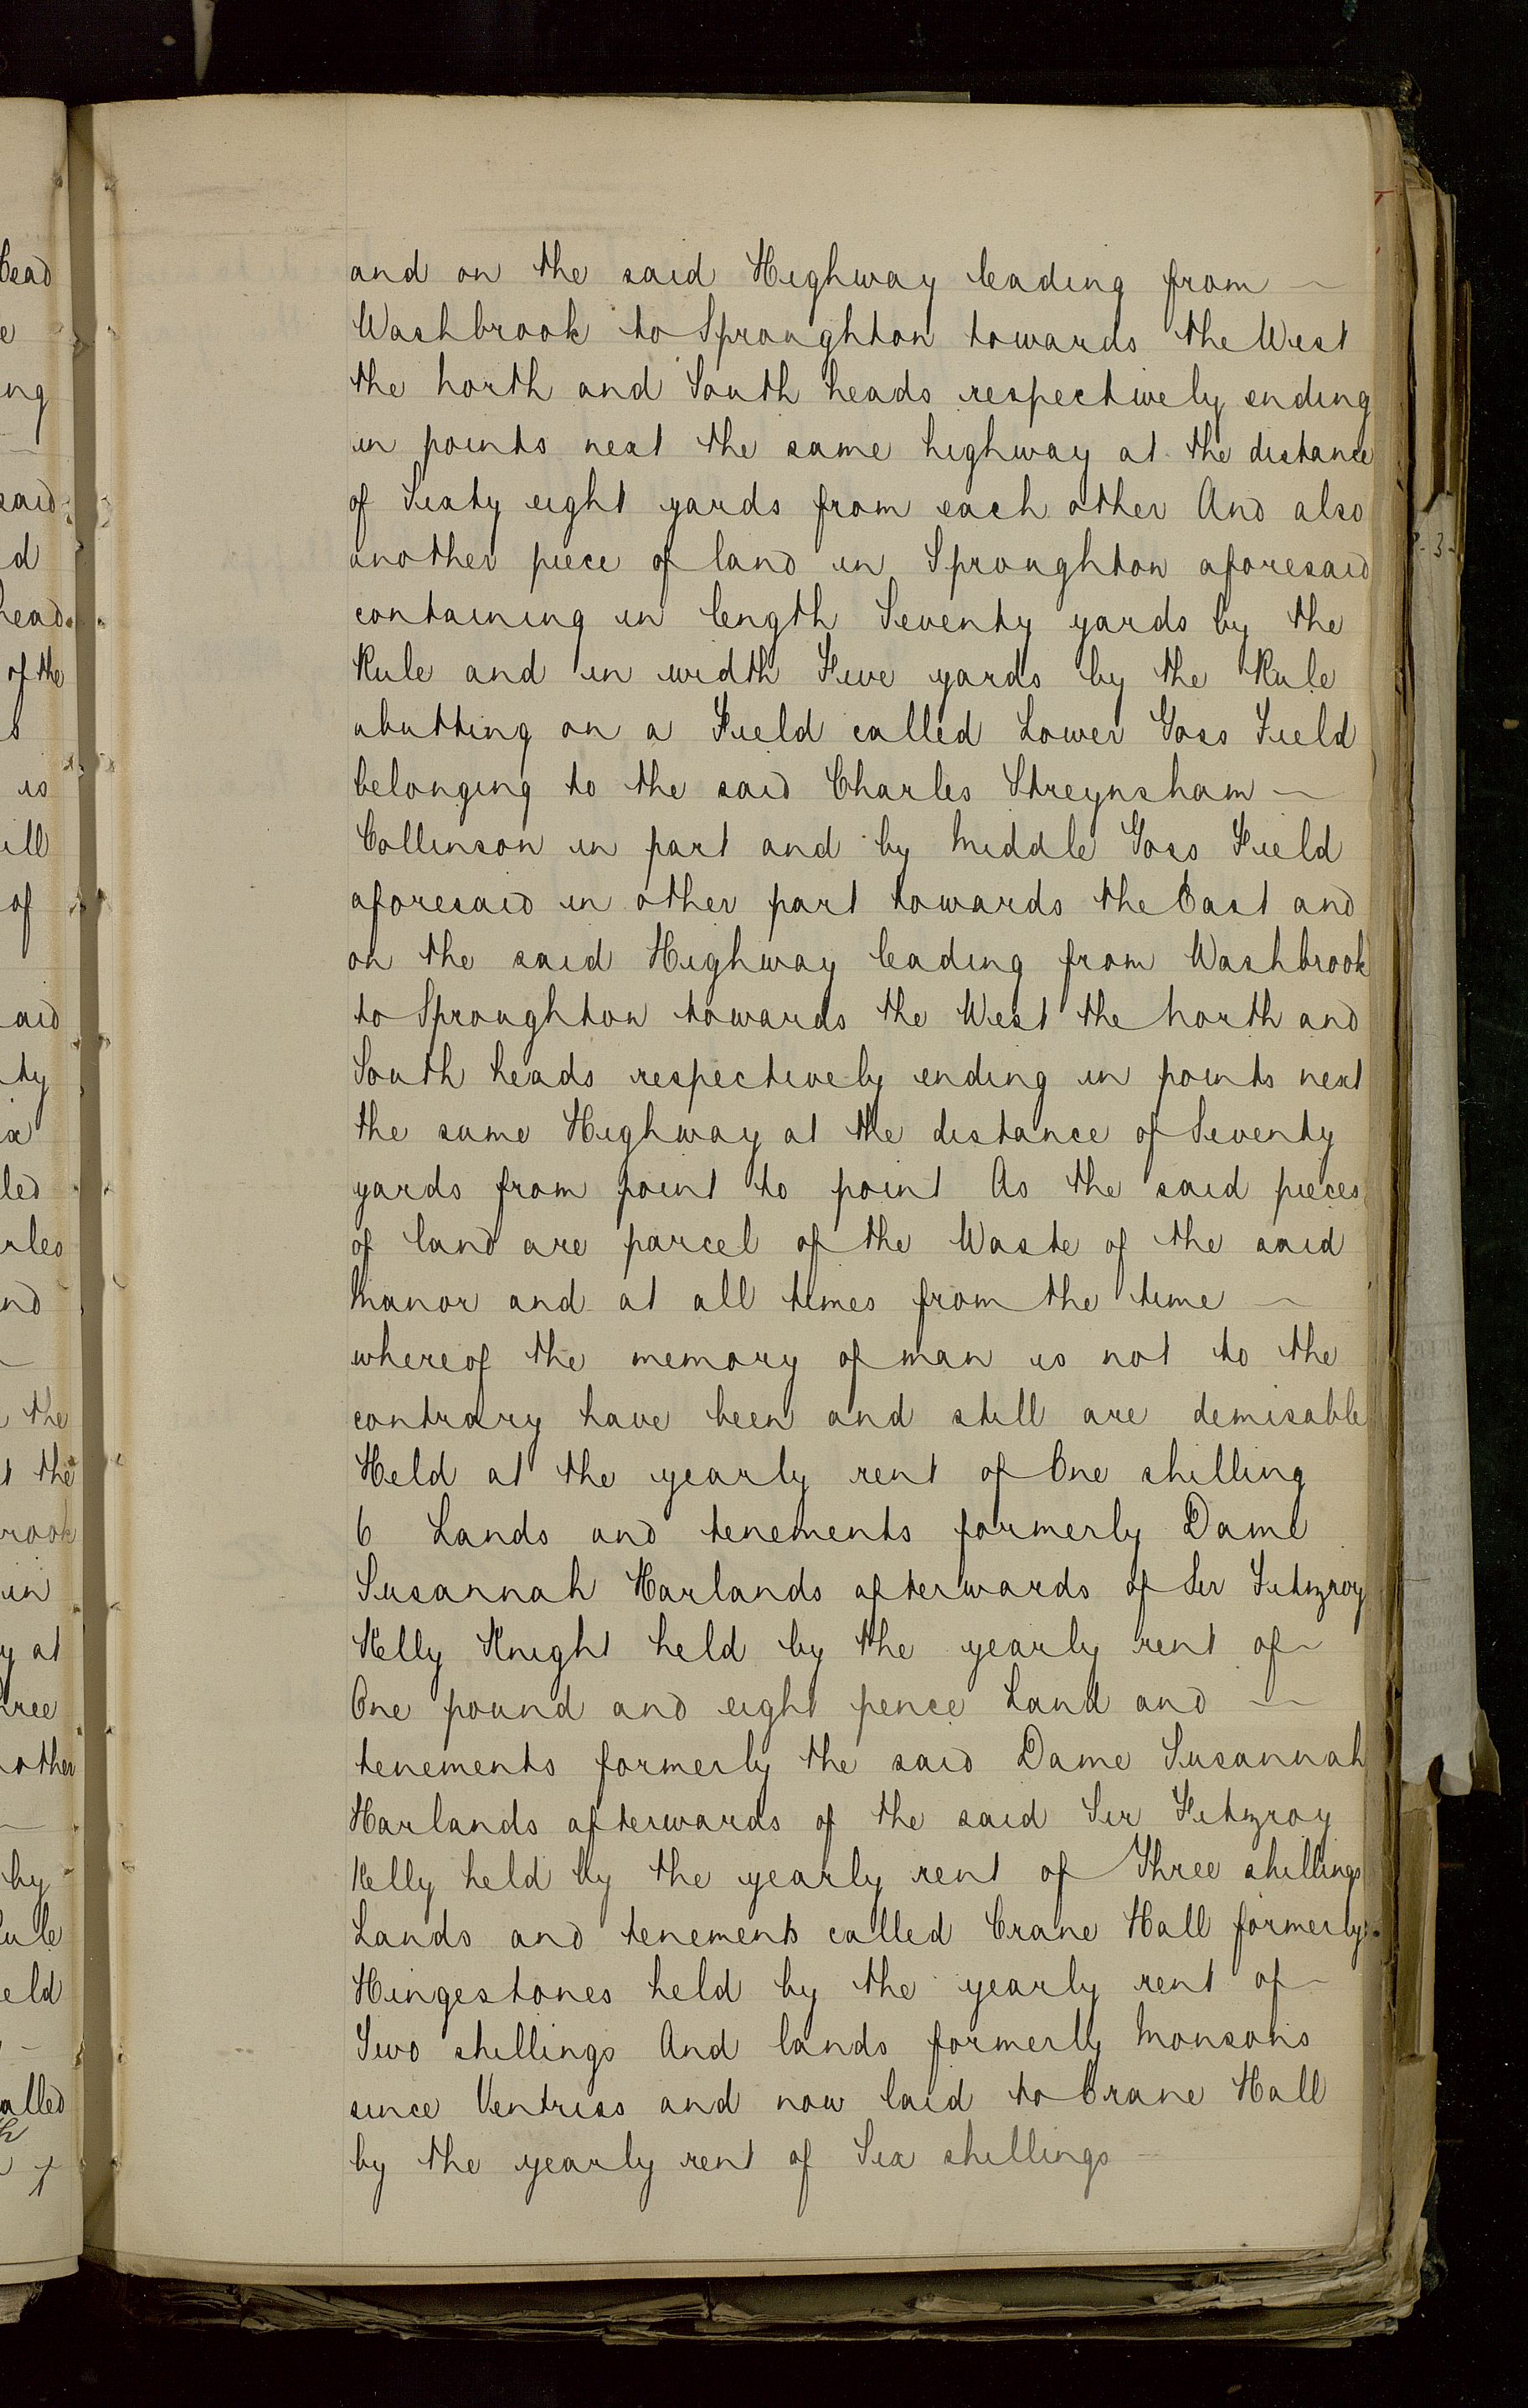 and on the said Highway leading from
Washbrook to Sproughton towards the West
the North and South heads respectively ending
in points next the same highway at the distance
of Sixty eight yards from each other And also
another piece of land in Sproughton aforesaid
containing in length Seventy yards by the
Rule and in width Five yards by the Rule
abutting on a Field called Lower Goss Field
belonging to the said Charles Streynsham
Collinson in part and by Middle Goss Field
aforesaid in other part towards the East and
on the said Highway leading from Washbrook
to Sproughton towards the West the North and
South heads respectively ending in points next
the same Highway at the distance of Seventy
yards from point to point As the said pieces
of land are parcel of the Waste of the said
Manor and at all times from the time
whereof the memory of man is not to the
contrary have been and still are demisable
Held at the yearly rent of One shilling
6 Lands and tenements formerly Dame
Susannah Harlands afterwards of Sir Fitzroy
Kelly Knight held by the yearly rent of
One pound and eight pence Land and
tenements formerly the said Dame Susannah
Harlands afterwards of the said Sir Fitzroy
Kelly held by the yearly rent of Three shillings
Lands and tenements called Crane Hall formerly
Hingestones held by the yearly rent of
Two shillings And lands formerly Monsons
since Ventriss and now laid to Crane Hall
by the yearly rent of Six shillings